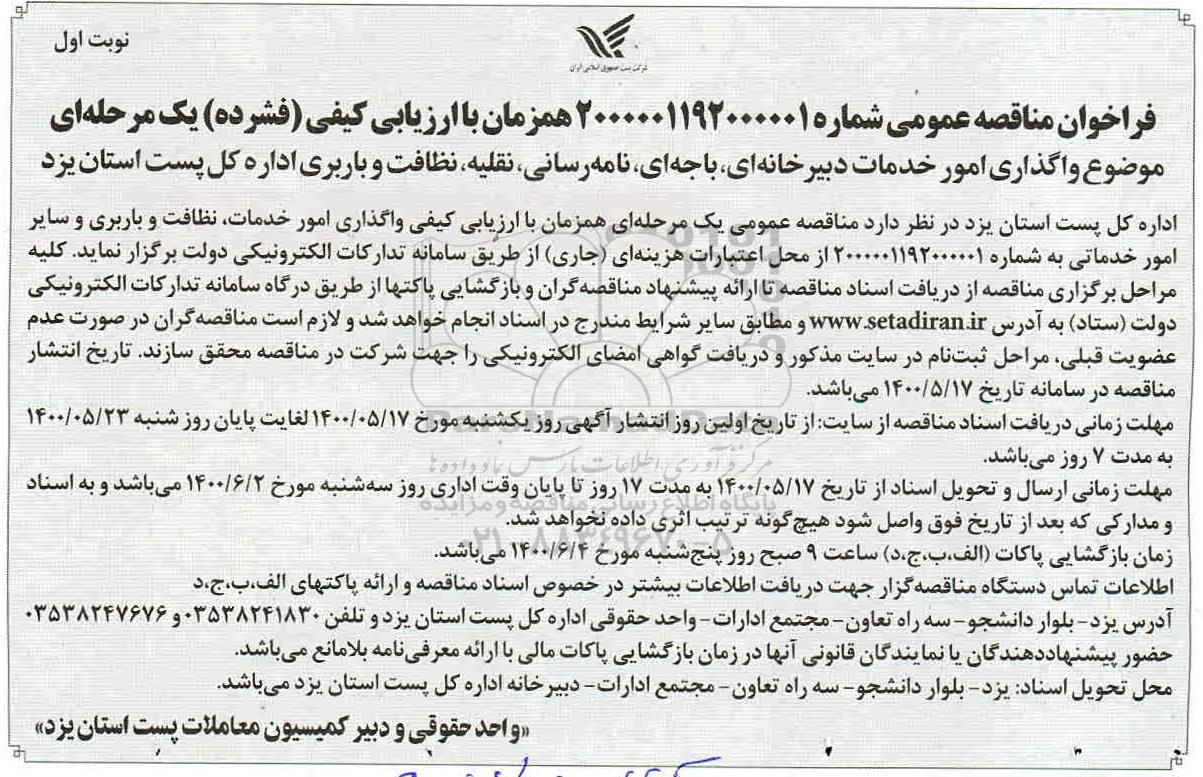 نوبت اول
شرکت پست جمهوری اسلامی ایران
فراخوان مناقصه عمومی شماره ۲۰۰۰۰۰۱۱۹۲۰۰۰۰۰۱ همزمان با ارزیابی کیفی (فشرده) یک مرحله‌ای
موضوع واگذاری امور خدمات دبیرخانه‌ای، باجه‌ای، نامه‌رسانی، نقلیه، نظافت و باربری اداره کل پست استان یزد
اداره کل پست استان یزد در نظر دارد مناقصه عمومی یک مرحله‌ای همزمان با ارزیابی کیفی واگذاری امور خدمات، نظافت و باربری و سایر
امور خدماتی به شماره ۲۰۰۰۰۰۱۱۹۲۰۰۰۰۰۱ از محل اعتبارات هزینه‌ای (جاری) از طریق سامانه تدارکات الکترونیکی دولت برگزار نماید. کلیه
مراحل برگزاری مناقصه از دریافت اسناد مناقصه تا ارائه پیشنهاد مناقصه‌گران و بازگشایی پاکتها از طریق درگاه سامانه تدارکات الکترونیکی
دولت (ستاد) به آدرس www.setadiran.ir و مطابق سایر شرایط مندرج در اسناد انجام خواهد شد و لازم است مناقصه‌گران در صورت عدم
عضویت قبلی، مراحل ثبت‌نام در سایت مذکور و دریافت گواهی امضای الکترونیکی را جهت شرکت در مناقصه محقق سازند. تاریخ انتشار
مناقصه در سامانه تاریخ ۱۴۰۰/۵/۱۷ می‌باشد.
مهلت زمانی دریافت اسناد مناقصه از سایت: از تاریخ اولین روز انتشار آگهی روز یکشنبه مورخ ۱۴۰۰/۰۵/۱۷ لغایت پایان روز شنبه ۱۴۰۰/۰۵/۲۳
به مدت ۷ روز می‌باشد.
مرکز فرآوری اطلاعات پارس نماد داده‌ها
مهلت زمانی ارسال و تحویل اسناد از تاریخ ۱۴۰۰/۰۵/۱۷ به مدت ۱۷ روز تا پایان وقت اداری روز سه‌شنبه مورخ ۱۴۰۰/۶/۲ می‌باشد و به اسناد
پایگاه اطلاع رسانی مناقصه و مزایده
و مدارکی که بعد از تاریخ فوق واصل شود هیچ‌گونه ترتیب اثری داده نخواهد شد.
۰۲۱-۸۸۳۴۹۶۷۰-۵
زمان بازگشایی پاکات (الف،ب،ج،د) ساعت ۹ صبح روز پنج‌شنبه مورخ ۱۴۰۰/۶/۴ می‌باشد.
اطلاعات تماس دستگاه مناقصه‌گزار جهت دریافت اطلاعات بیشتر در خصوص اسناد مناقصه و ارائه پاکتهای الف،ب،ج،د
آدرس یزد- بلوار دانشجو- سه راه تعاون- مجتمع ادارات- واحد حقوقی اداره کل پست استان یزد و تلفن ۰۳۵۳۸۲۴۱۸۳۰ و ۰۳۵۳۸۲۴۷۶۷۶
حضور پیشنهاددهندگان یا نمایندگان قانونی آنها در زمان بازگشایی پاکات مالی با ارائه معرفی‌نامه بلامانع می‌باشد.
محل تحویل اسناد: یزد- بلوار دانشجو- سه راه تعاون- مجتمع ادارات- دبیرخانه اداره کل پست استان یزد می‌باشد.
«واحد حقوقی و دبیر کمیسیون معاملات پست استان یزد»